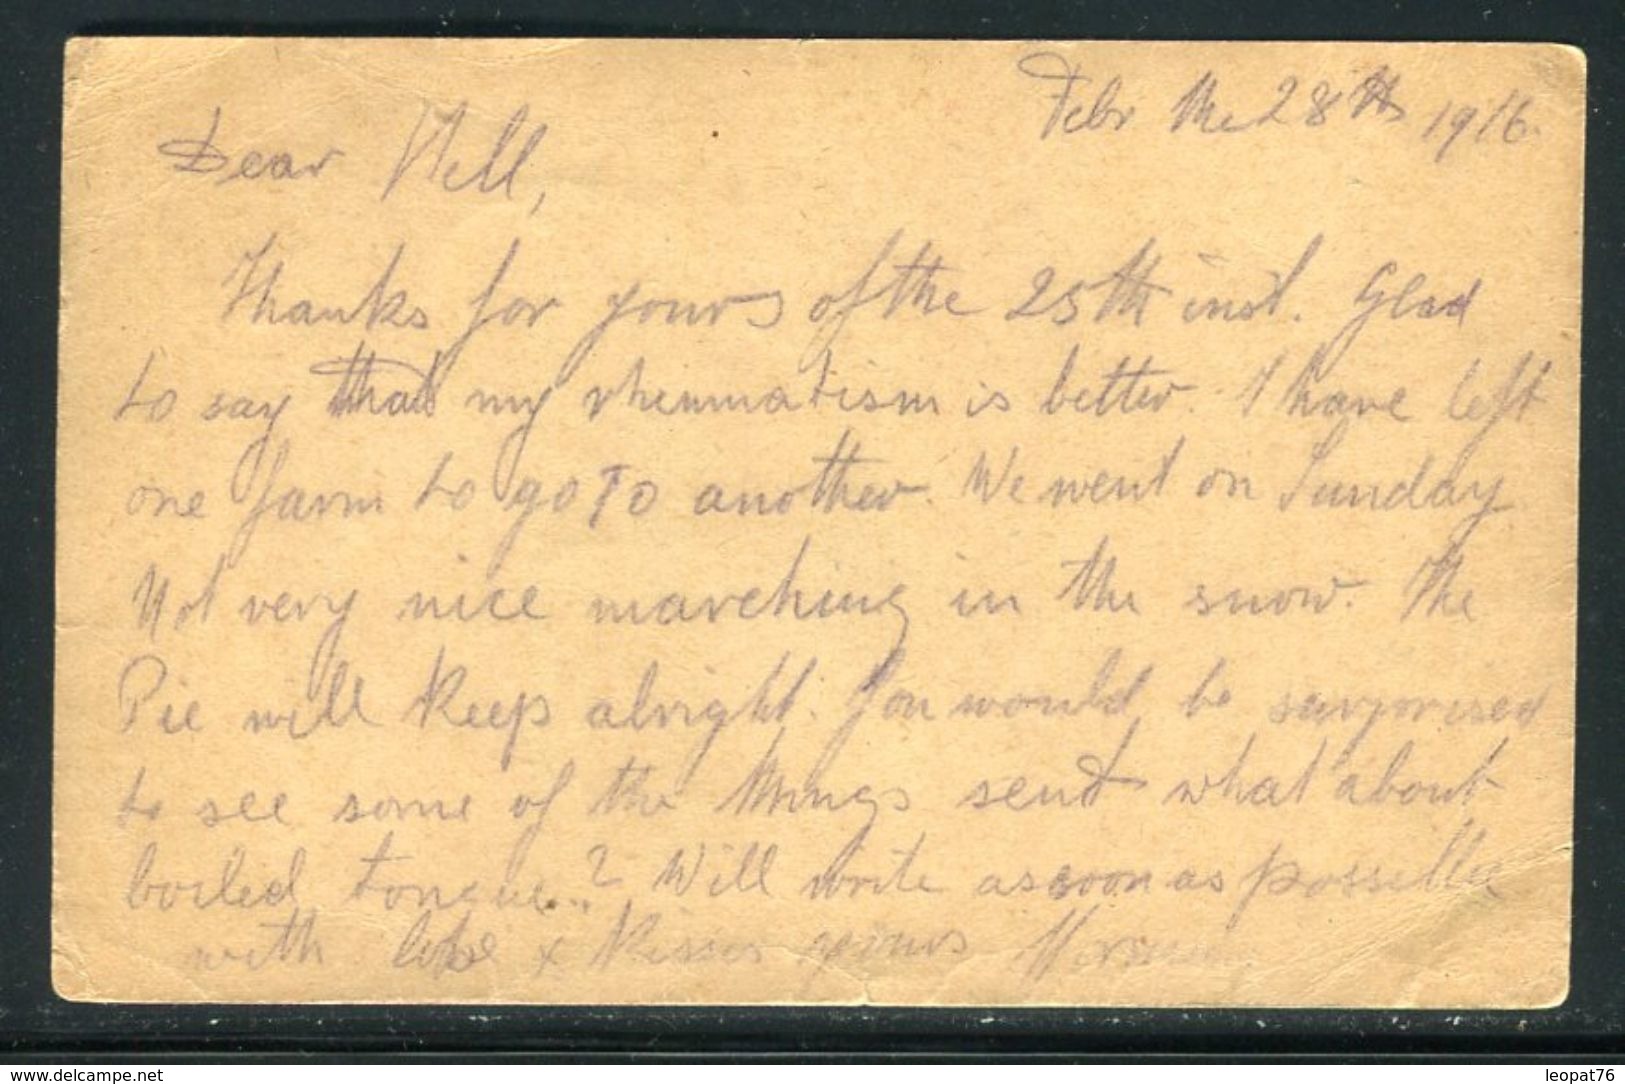 Febr the 28th 1916.
Dear Nell,
Thanks for yours of the 25th inst. Glad
to say that my rheumatism is better. I have left
one farm to go to another. We went on Sunday
Not very nice marching in the snow. The
Pie will keep alright. You would be surprised
to see some of the things sent what about
boiled tongue..? Will write as soon as possible
with love x Kisses yours
www.delcampe.net
leopat76